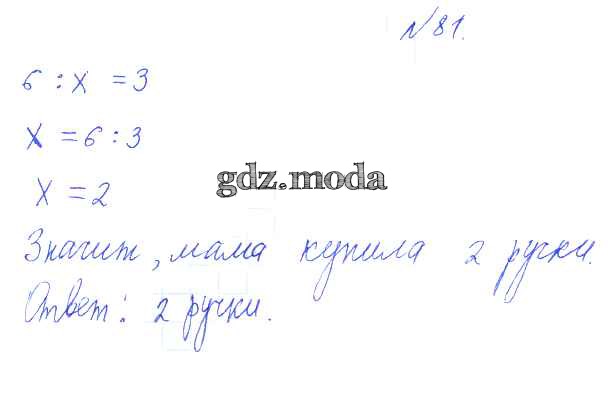 №81.
6 : x = 3
x = 6 : 3
x = 2
gdz.moda
Значит, мама купила 2 ручки.
Ответ: 2 ручки.